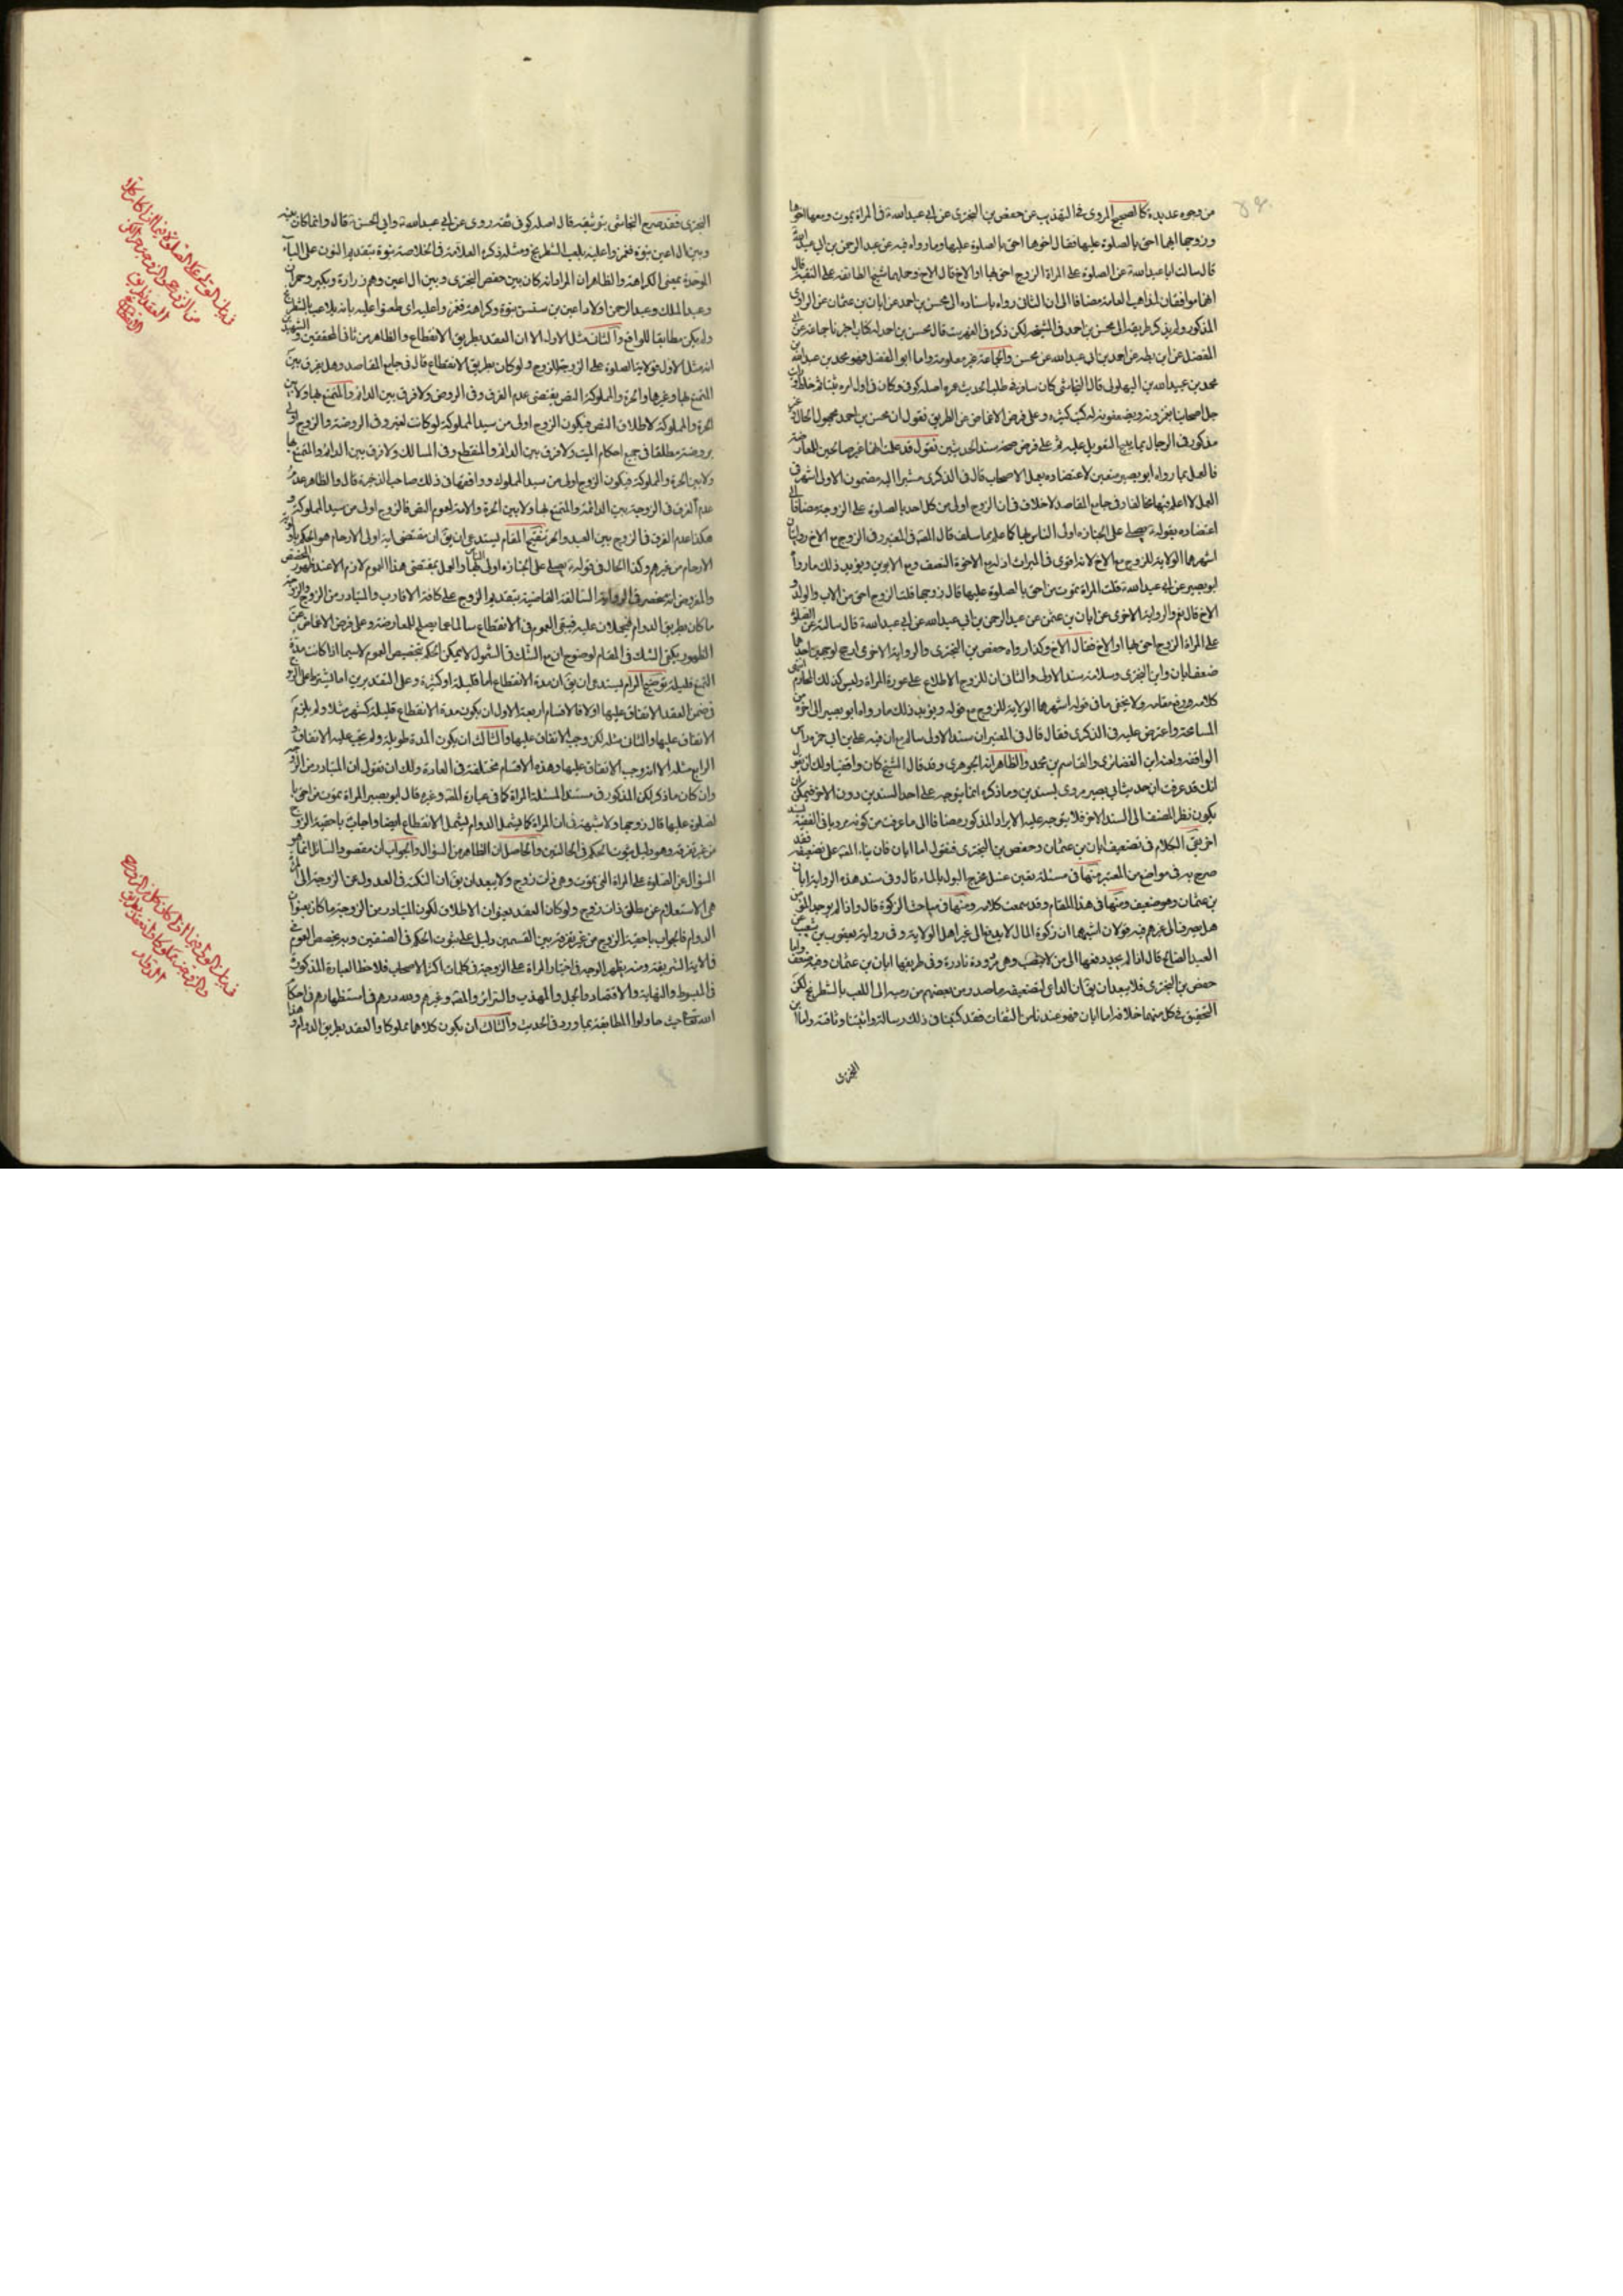 من وجوه عديدة كالصحيح المروى فى التهذيب عن حفص بن البخترى عن ابى عبدالله ع فى المراة تموت ومعها اخوها
وزوجها ايهما احق بالصلوة عليها فقال اخوها احق بالصلوة عليها وما رواه فيه عن عبد الرحمن بن ابى عبد الله
قال سالت ابا عبدالله ع عن الصلوة على المراة الزوج احق بها او الاخ قال الاخ وحملهما شيخ الطائفة على التقية قال
لانهما موافقان لمذاهب العامة مضافا الى ان الثانى رواه باسناده الى محسن بن احمد عن ابان بن عثمان عن الراوى
المذكور ولم يذكر طريقه الى محسن بن احمد فى المشيخة لكن ذكره فى الفهرست قال محسن بن احمد له كتاب اخبرنا جماعة عن ابى
المفضل عن ابن بطة عن احمد بن ابى عبدالله عن محسن والجماعة غير معلومة واما ابو المفضل فهو محمد بن عبدالله بن
محمد بن عبيد الله بن البهلول قال النجاشى كان سافر فى طلب الحديث عمره اصله كوفى وكان فى اول امره ثبتا ثم خلط ورايت
جل اصحابنا يغمزونه ويضعفونه له كتب كثيره وعلى فرض الاغماض عن الطريق نقول ان محسن بن احمد مجهول الحال غير
مذكور فى الرجال بما يليه التعويل عليه ثم على فرض صحة سند الحديثين نقول قد علمت انهما غير صالحين للمعارضة
فالعمل بما رواه ابو بصير متعين لاعتضاده بعمل الاصحاب قال فى الذكرى مشيرا اليه مضمون الاولى اشهر فى
العمل لا اعلم فيها مخالفا وفى جامع المقاصد لا خلاف فى ان الزوج اولى من كل احد بالصلوة على الزوجة مضافا الى
اعتضاده بقوله ع يصلى على الجنازه اولى الناس بها كما علم بما سلف قال المصنف فى المعتبر وفى الزوج مع الاخ روايتان
اشهرهما الولاية للزوج مع الاخ لانه اقوى فى الميراث اذ له مع الاخوة النصف ومع الابوين ويؤيد ذلك ما رواه
ابو بصير عن ابى عبدالله ع قلت المراة تموت من احق بالصلوة عليها قال زوجها قلت الزوج احق من الاب والولد و
الاخ قال نعم والرواية الاخرى عن ابان بن عثمان عن عبد الرحمن بن ابى عبدالله عن ابى عبدالله ع قال سالته عن الصلوة
على المراة الزوج احق بها او الاخ فقال الاخ وكذا رواه حفص بن البخترى والرواية الاخرى ارجح لوجهين احدهما
ضعف ابان وابن البخترى وسلامة سند الاولى والثانى ان للزوج الاطلاع على عورة المراة وليس كذلك المحارم انتهى
كلامه رفع مقامه ولا يخفى ما فى قوله اشهرهما الولاية للزوج مع قوله ويؤيد ذلك ما رواه ابو بصير الى اخره من
المسامحة واعترض عليه فى الذكرى فقال قال فى المعتبر ان سند الاولى سالم مع ان فيه على بن ابى حمزه راس
الواقفة ولعنه ابن الغضائرى والقاسم بن محمد والظاهر انه الجوهرى وقد قال الشيخ كان واقفيا ولك ان تقول
انك قد عرفت ان حديث ابى بصير مروى بسندين وما ذكره انما يتوجه على احد السندين دون الاخر فيمكن ان
يكون نظر المصنف الى السند الاخر فلا يتوجه عليه الايراد المذكور مضافا الى ما عرفت من كونه مرويا فى الفقيه
اخر بقى الكلام فى تضعيف ابان بن عثمان وحفص بن البخترى فنقول اما ابان فان بناء المصنف على تضعيفه فقد
صرح به فى مواضع من المعتبر منها فى مسئلة تعين غسل مخرج البول بالماء قال وفى سند هذه الرواية ابان
بن عثمان وهو ضعيف ومنها فى هذا المقام وقد سمعت كلامه ومنها فى مباحث الزكوة قال واذا لم يوجد المؤمن
هل يصرف الى غيرهم فيه قولان اشبههما ان زكوة المال لا يدفع الى غير اهل الولاية وفى رواية يعقوب بن شعيب عن
العبد الصالح قال اذا لم يجد دفعها الى من لا ينصب وهى نادرة وفى طريقها ابان بن عثمان وفيه ضعف واما
حفص بن البخترى فلا يبعد ان يق ان الداعى لتضعيفه ما صدر من بعضهم من رميه الى اللعب بالشطرنج لكن
التحقيق فى كل منهما خلافه اما ابان فهو عندنا من الثقات فقد كتبنا فى ذلك رسالة واثبتنا وثاقته واما ابن
البخترى
البخترى فقد صرح النجاشى بتوثيقه قال اصله كوفى ثقه روى عن ابى عبدالله ع وابى الحسن ع قال وانما كان بينه
وبين ال اعين نبوة فغمزوا عليه بلعب الشطرنج ومثله ذكره العلامة فى الخلاصة نبوة بتقديم النون على الباء
الموحدة بمعنى الكراهة والظاهر ان المراد انه كان بين حفص البخترى وبين ال اعين وهم زرارة وبكير وحمران
وعبد الملك وعبد الرحمن اولاد اعين بن سنسن نبوة وكراهة فغمزوا عليه اى طعنوا عليه بانه يلاعب بالشطرنج
ولم يكن مطابقا للواقع والثانى مثل الاول الا ان العقد بطريق الانقطاع والظاهر من ثانى المحققين والشهيدين
انه مثل الاول فولاية الصلوة على الزوجة للزوج ولو كان بطريق الانقطاع قال فى جامع المقاصد وهل يفرق بين
المتمتع بها وغيرها والحرة والمملوكة النص يقتضى عدم الفرق وفى الروض ولا فرق بين الدائم والمتمتع بها ولا بين
الحرة والمملوكة لاطلاق النص فيكون الزوج اولى من سيد المملوكة لو كانت لغيره وفى الروضة والزوج اولى
بزوجته مطلقا فى جميع احكام الميت ولا فرق بين الدائم والمنقطع وفى المسالك ولا فرق بين الدائم والمتمتع بها
ولا بين الحرة والمملوكة فيكون الزوج اولى من سيد المملوك ووافقهما فى ذلك صاحب الذخيرة قال والظاهر عدم
عدم الفرق فى الزوجة بين الدائمة والمتمتع بها ولا بين الحرة والامة لعموم النص فالزوج اولى من سيد المملوكة و
هكذا عدم الفرق فى الزوج بين العبد والحر تنقيح المقام يستدعى ان يق ان مقتضى اية اولى الارحام هو الحكم باولوية
الارحام من غيرهم وكذا الحال فى قوله ع يصلى على الجنازه اولى الناس بها والعمل بمقتضى هذا العموم لازم الا عند ظهور المخصص
والمفروض انه منحصر فى الرواية السالفة القاضية بتقديم الزوج على كافة الاقارب والمتبادر من الزوج والزوجة
ما كان بطريق الدوام فيحملان عليه فبقى العموم فى الانقطاع سالما عما يصلح للمعارضة وعلى فرض الاغماض عن
الظهور يكفى الشك فى المقام لوضوح ان مع الشك فى الشمول لا يمكن الحكم بتخصيص العموم لا سيما اذا كانت مدة
التمتع قليلة توضيح المرام يستدعى ان يق ان مدة الانقطاع اما قليلة او كثيرة وعلى التقديرين اما يشترط على الزوج
فى ضمن العقد الانفاق عليها اولا فالاقسام اربعة الاول ان يكون مدة الانقطاع قليلة كشهر مثلا ولم يلتزم
الانفاق عليها والثانى مثله لكن وجب الانفاق عليها والثالث ان يكون المدة طويلة ولم يجب عليه الانفاق و
الرابع مثله الا انه وجب الانفاق عليها وهذه الاقسام مختلفة فى العادة ولك ان تقول ان المتبادر من الزوجة
وان كان ما ذكر لكن المذكور فى مستند المسئلة المراة كما فى عبارة المصنف وغيره قال ابو بصير المراة تموت من احق با
لصلوة عليها قال زوجها ولا شبهة فى ان المراة كما يشمل الدوام يشمل الانقطاع ايضا واجاب باحقية الزوج
من غير تفرقة وهو دليل ثبوت الحكم فى الحالتين والحاصل ان الظاهر من السؤال والجواب ان مقصود السائل انما هو
السؤال عن الصلوة على المراة التى تموت وهى ذات زوج ولا يبعد ان يق ان النكتة فى العدول عن الزوجة الى المراة
هى الاستعلام عن مطلق ذات زوج ولو كان العقد بعنوان الاطلاق لكون المتبادر من الزوجة ما كان بعنوان
الدوام فالجواب باحقية الزوج من غير تفرقة بين القسمين دليل على ثبوت الحكم فى الصنفين وبه يخصص العموم فى
الاية الشريفة ومنه يظهر الوجه فى اختيار المراة على الزوجة فى كلمات اكثر الاصحاب فلاحظ العبارة المذكورة
فى المبسوط والنهاية والاقتصاد والجمل والمهذب والسرائر والمصنف وغيرهم ولله درهم فى استظهارهم فى احكام
الله تعالى حيث حاولوا المطابقة بما ورد فى الحديث والثالث ان يكون كلاهما مملوكا والعقد بطريق الدوام وهذا
فى بيان الولى على الصلوة فيما اذا كان كلا
من الزوج والزوجة حرا لكن
العقد بطريق
الانقطاع
فى بيان الولى فيما اذا كان كل من الزوج
والزوجة مملوكا وانعقد بطريق
الدوام